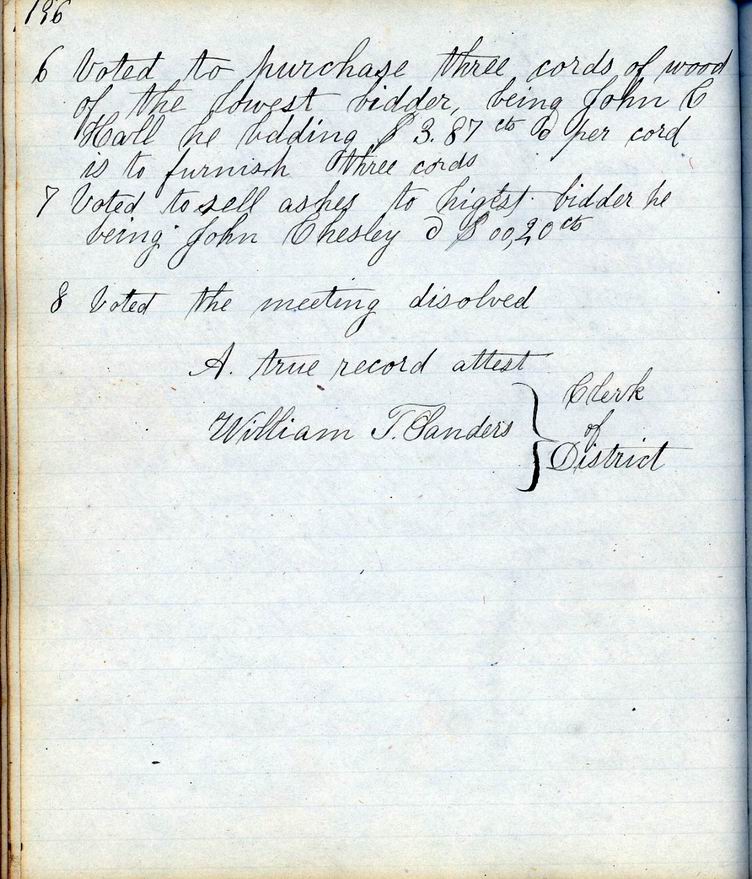 196
6 Voted to purchase three cords of wood
of the lowest bidder, being John C
Hall he bdding $3.87 cts per cord
is to furnish three cords
7 Voted to sell ashes to higest bidder he
being John Chesley $00,20 cts
8 Voted the meeting disolved
A. true record attest
William T. Sanders } Clerk
of
District